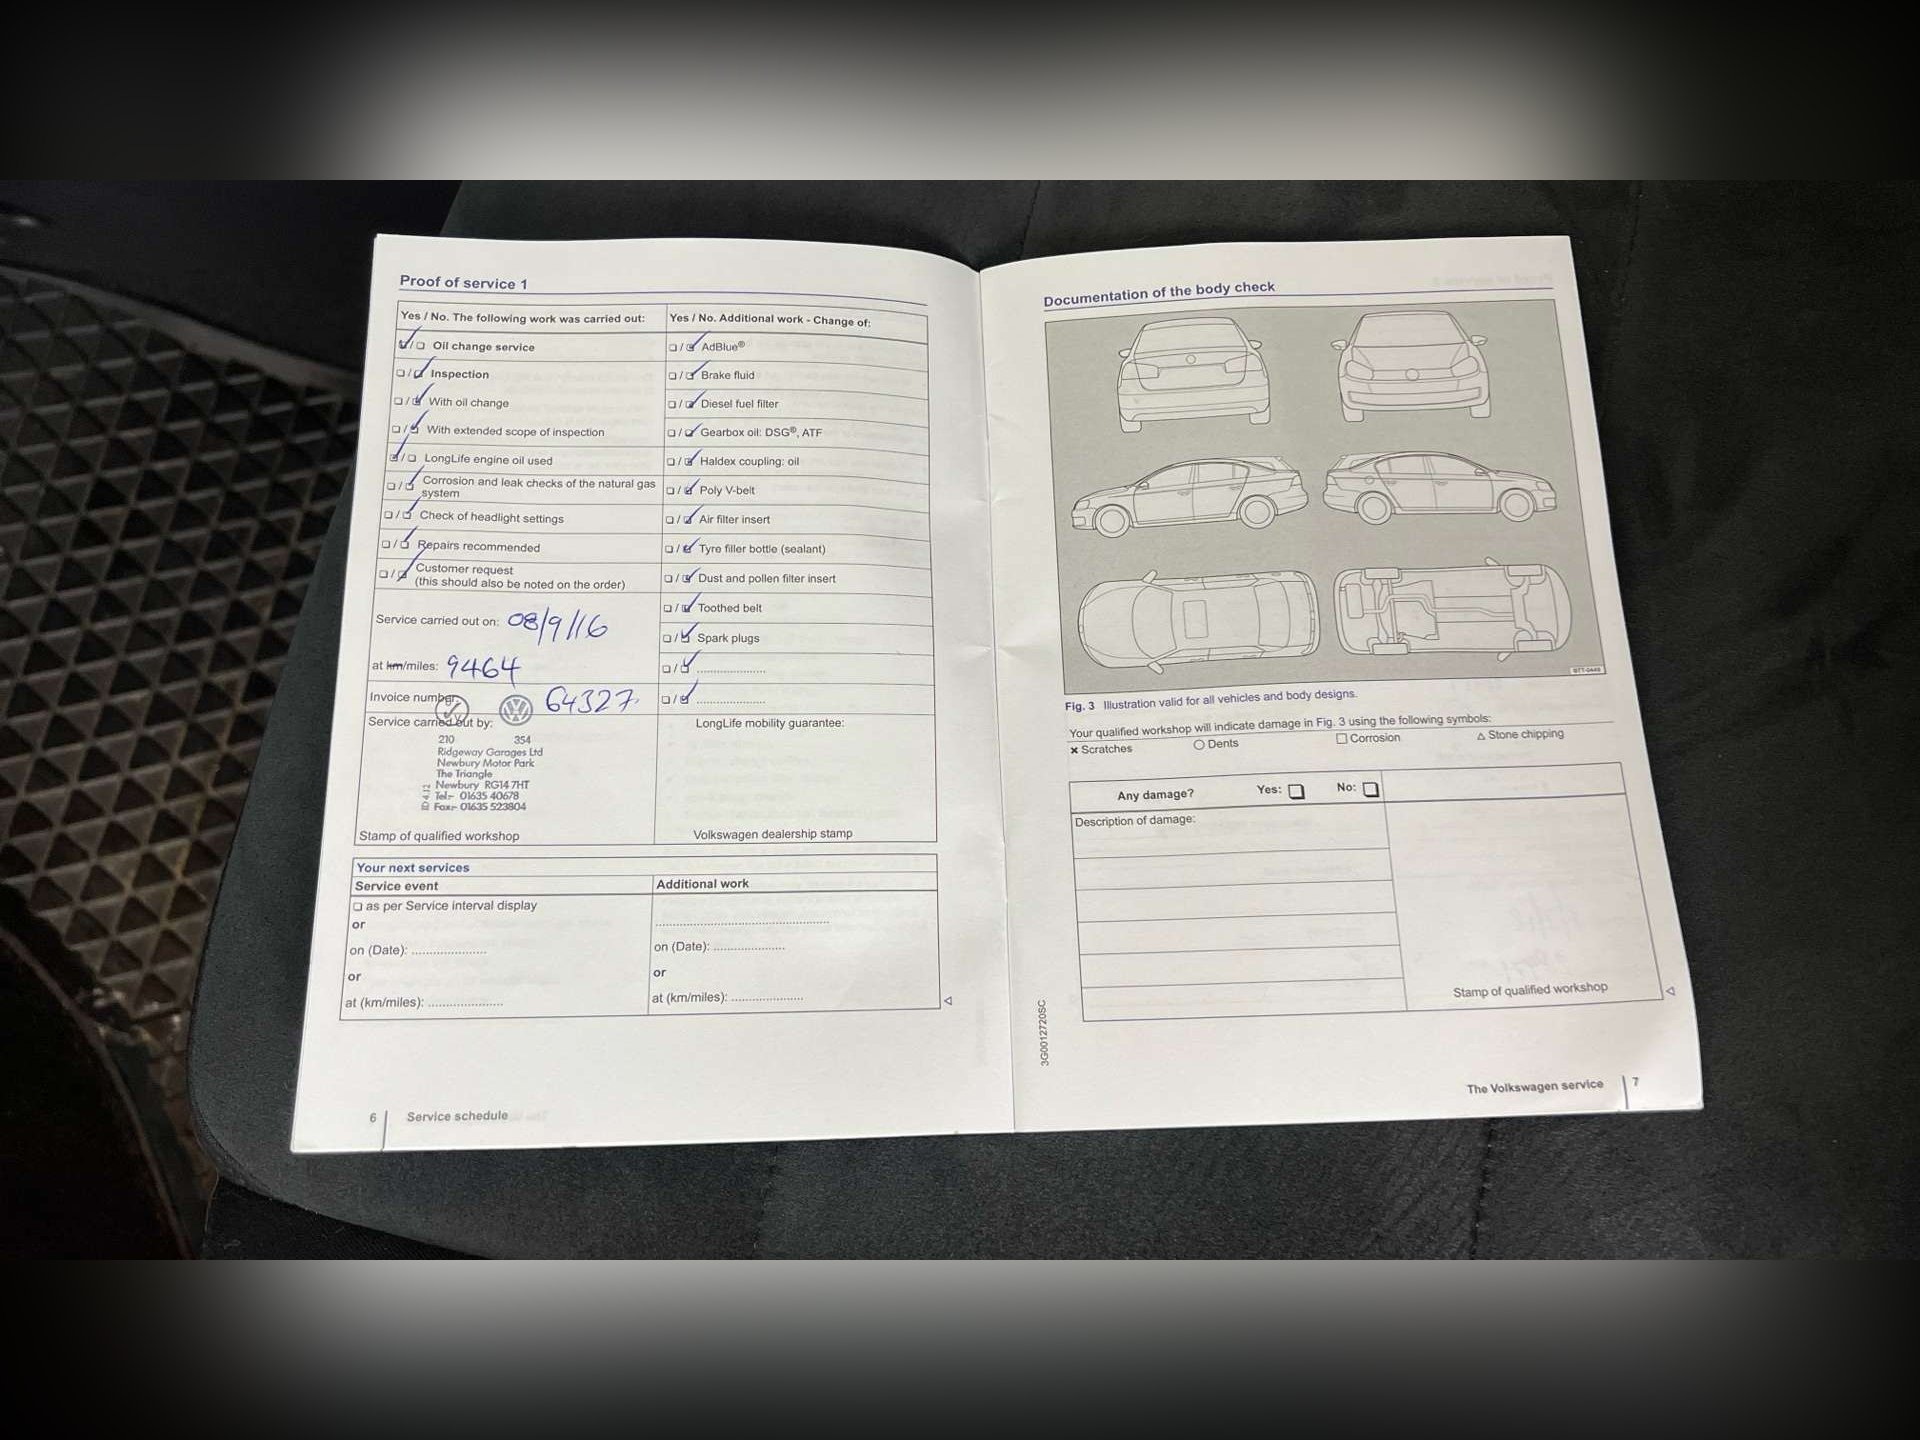 Proof of service 1
Yes / No. The following work was carried out:
Oil change service
Inspection
With oil change
With extended scope of inspection
LongLife engine oil used
Corrosion and leak checks of the natural gas
system
Check of headlight settings
Repairs recommended
Customer request
(this should also be noted on the order)
Service carried out on: 08/9/16
at km/miles: 9464
Invoice number: 64327
Service carried out by:
210 354
Ridgeway Garages Ltd
Newbury Motor Park
The Triangle
Newbury RG14 7HT
Tel:- 01635 40678
Fax:- 01635 523804
Stamp of qualified workshop
Yes / No. Additional work - Change of:
AdBlue®
Brake fluid
Diesel fuel filter
Gearbox oil: DSG®, ATF
Haldex coupling: oil
Poly V-belt
Air filter insert
Tyre filler bottle (sealant)
Dust and pollen filter insert
Toothed belt
Spark plugs
LongLife mobility guarantee:
Volkswagen dealership stamp
Your next services
Service event
as per Service interval display
or
on (Date): ......................
or
at (km/miles): ......................
Additional work
on (Date): ......................
or
at (km/miles): ......................
6 Service schedule
Documentation of the body check
Fig. 3 Illustration valid for all vehicles and body designs.
Your qualified workshop will indicate damage in Fig. 3 using the following symbols:
× Scratches ○ Dents □ Corrosion △ Stone chipping
Any damage? Yes: No:
Description of damage:
Stamp of qualified workshop
3G0012720SC
The Volkswagen service 7